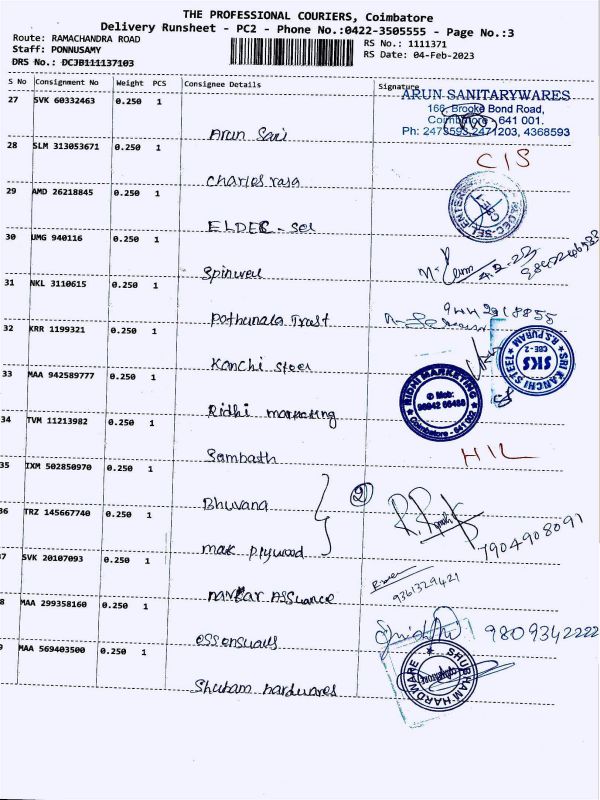 THE PROFESSIONAL COURIERS, Coimbatore
Delivery Runsheet - PC2 - Phone No.:0422-3505555 - Page No.:3
Route: RAMACHANDRA ROAD
Staff: PONNUSAMY
DRS No.: DCJB111137103
RS No.: 1111371
RS Date: 04-Feb-2023
S No Consignment No Weight PCS Consignee Details Signature
27 SVK 60332463 0.250 1
Arun Sani
ARUN SANITARYWARES
166, Brooke Bond Road,
Coimbatore - 641 001.
Ph: 2473593,2471203, 4368593
28 SLM 313053671 0.250 1
Charles rasa
CIS
29 AMD 26218845 0.250 1
ELDEC - Sel
30 UMG 940116 0.250 1
Spinwell
4.2.23
31 NKL 3110615 0.250 1
Pathanala Trust
32 KRR 1199321 0.250 1
Kanchi Steel
SRI KANCHI STEEL
R.S.PURAM
CBE-2
SKS
33 MAA 942589777 0.250 1
Ridhi marketing
RIDHI MARKETING
Mob:
Coimbatore - 641 002
34 TVM 11213982 0.250 1
Sambath
HIL
35 IXM 502850970 0.250 1
Bhuvana
2
36 TRZ 145667740 0.250 1
mak Plywood
7904908091
37 SVK 20107093 0.250 1
navkar Assurance
9361329421
8 MAA 299358160 0.250 1
essensuals
9809342222
9 MAA 569403500 0.250 1
Shubam hardwares
SHUBHAM HARDWARE